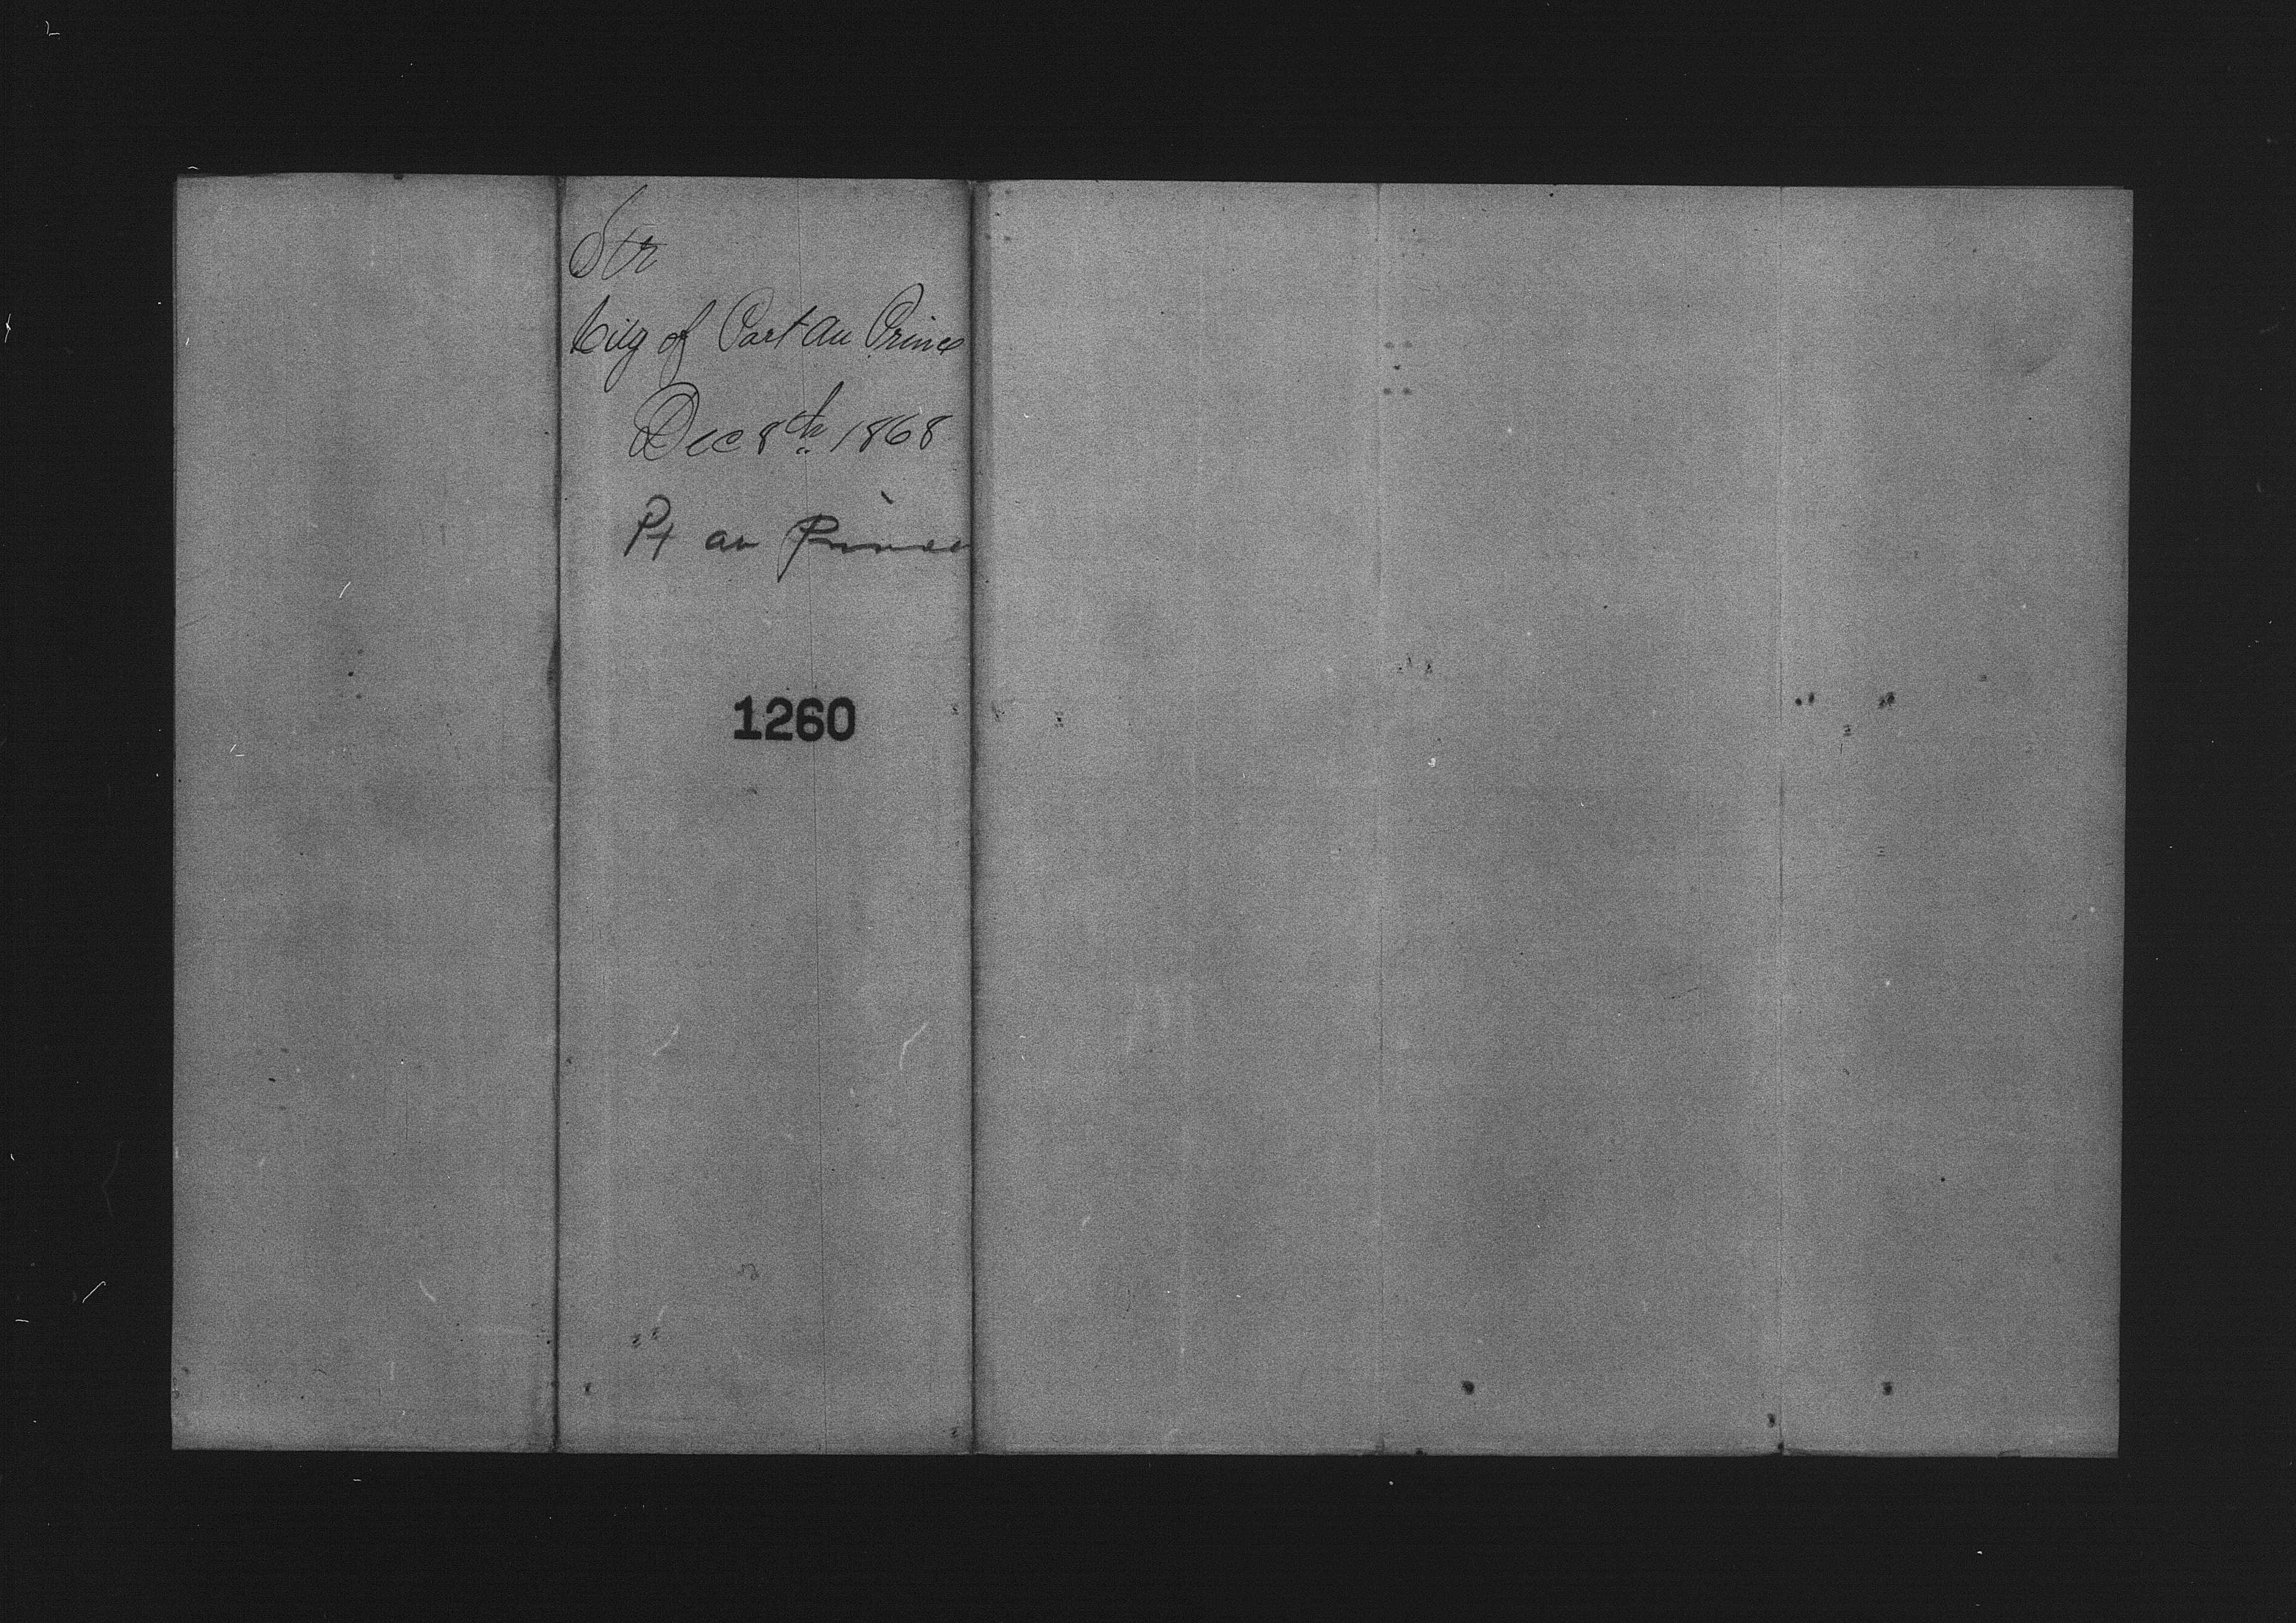 Str
City of Port au Prince
Dec 8th 1868
Pt au Prince
1260